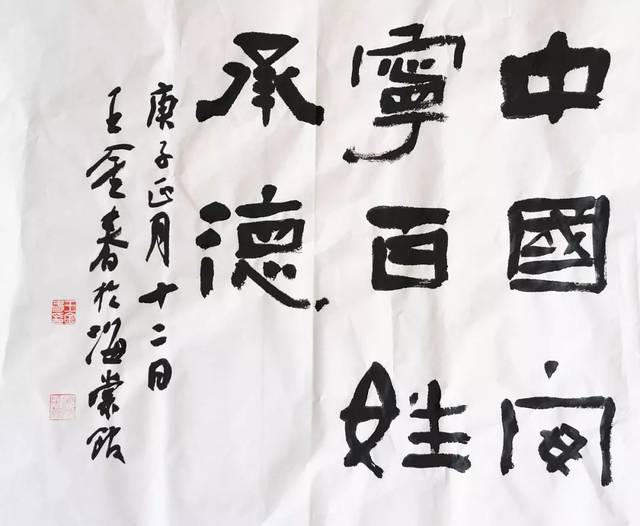 中國安
寧百姓
承德
庚子正月十二日
王金春於海棠館